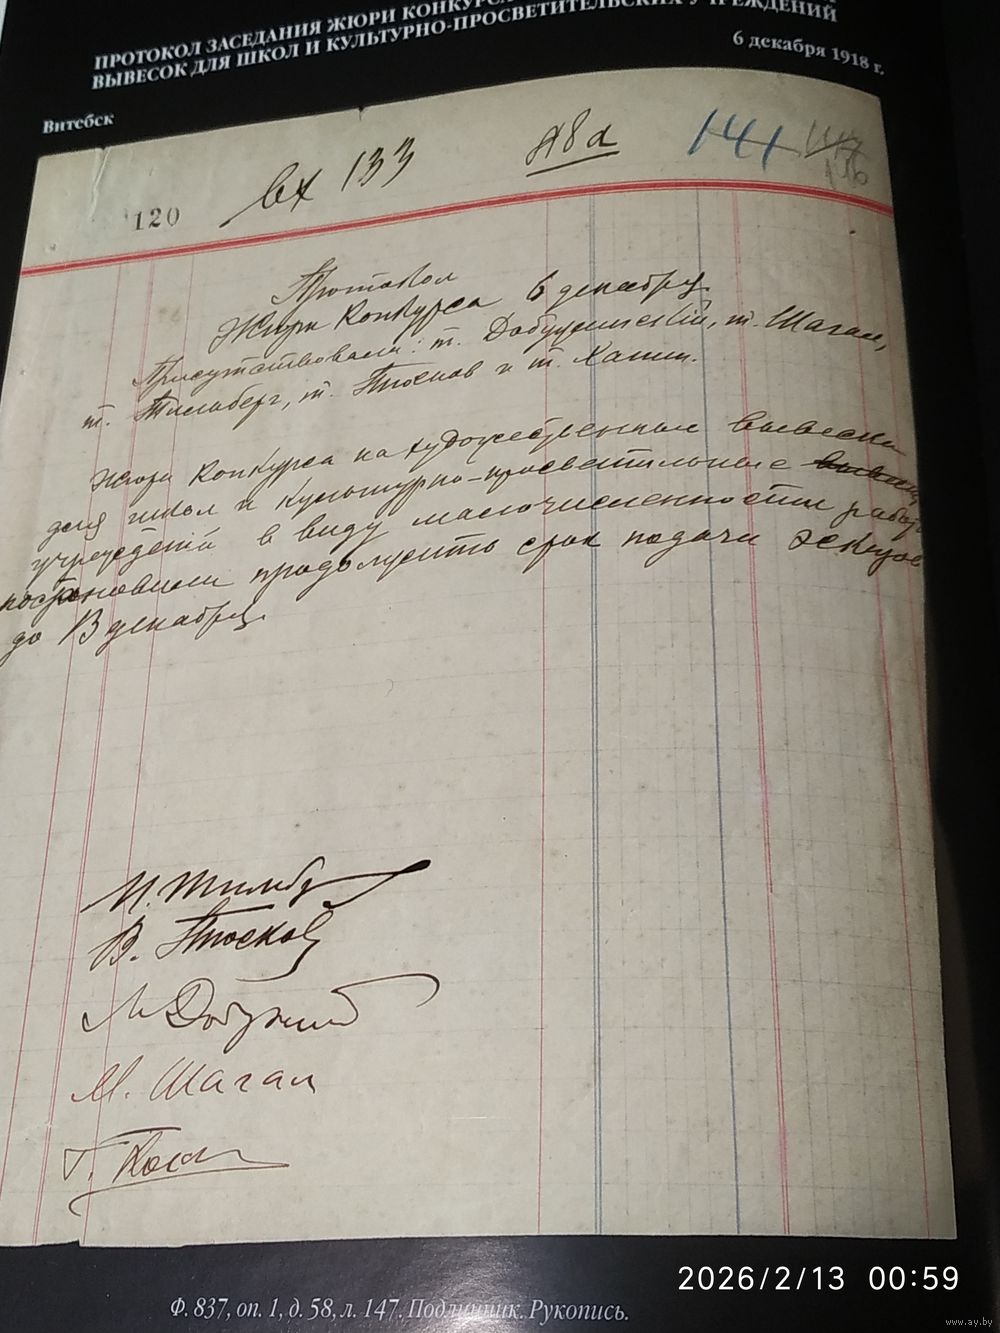 ПРОТОКОЛ ЗАСЕДАНИЯ ЖЮРИ КОНКУРСА
ВЫВЕСОК ДЛЯ ШКОЛ И КУЛЬТУРНО-ПРОСВЕТИТЕЛЬСКИХ УЧРЕЖДЕНИЙ
6 декабря 1918 г.
Витебск
вх 133
141
120
Протокол
Жюри Конкурса 6 декабря
Присутствовали: т. Добужинскій, т. Шагал,
т. Тильберг, т. Плесков и т.
Жюри Конкурса на художественныя вывески
для школ и культурно-просветительные
учреждений в виду малочисленности работ
постановили продолжить срок подачи эскизов
до 13 декабря.
И. Тильбер
В. Плесков
М. Добужинс
М. Шагал
Г.
2026/2/13 00:59
Ф. 837, оп. 1, д. 58, л. 147. Подлинник. Рукопись.
www.ay.by